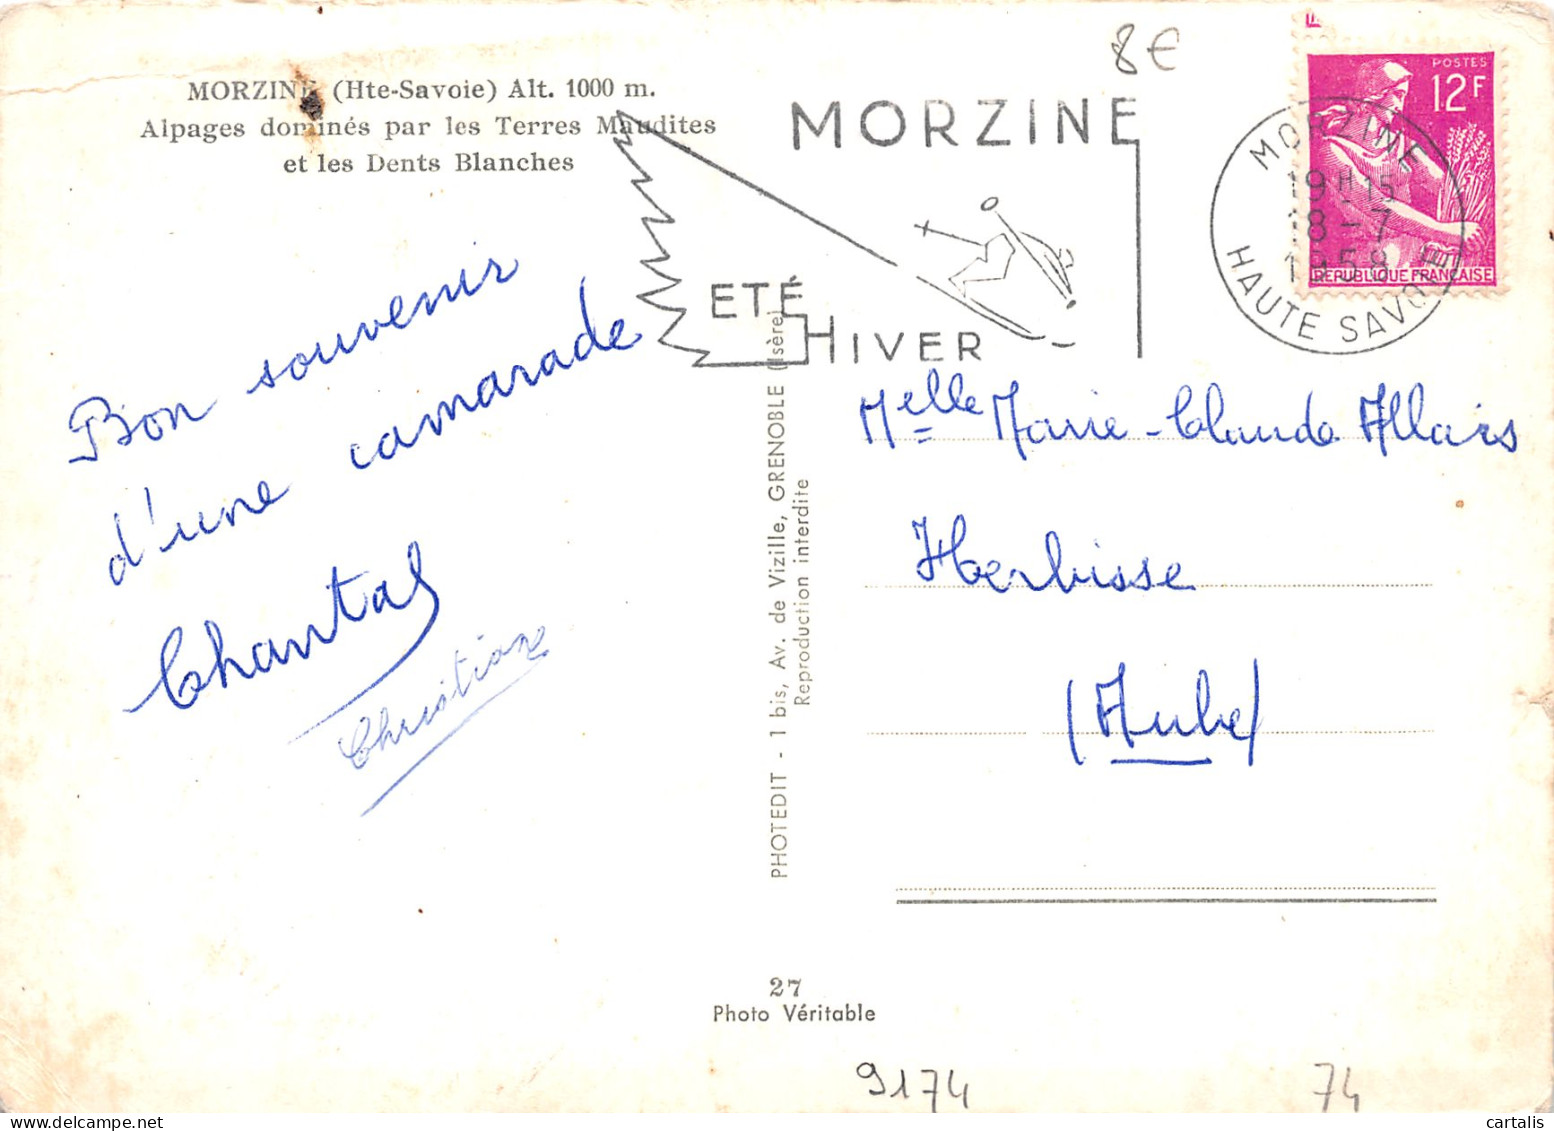 8€
MORZINE (Hte-Savoie) Alt. 1000 m.
Alpages dominés par les Terres Maudites
et les Dents Blanches
MORZINE
ETÉ
HIVER
POSTES
12F
REPUBLIQUE FRANÇAISE
MORZINE
19H15
18-7
1958
HAUTE SAVOIE
Bon souvenir
d'une camarade
Chantal
Christiane
PHOTEDIT - 1 bis, Av. de Vizille, GRENOBLE (Isère)
Reproduction interdite
Melle Marie-Claude Allais
Herbisse
(Aube)
27
Photo Véritable
9174
74
cartalis